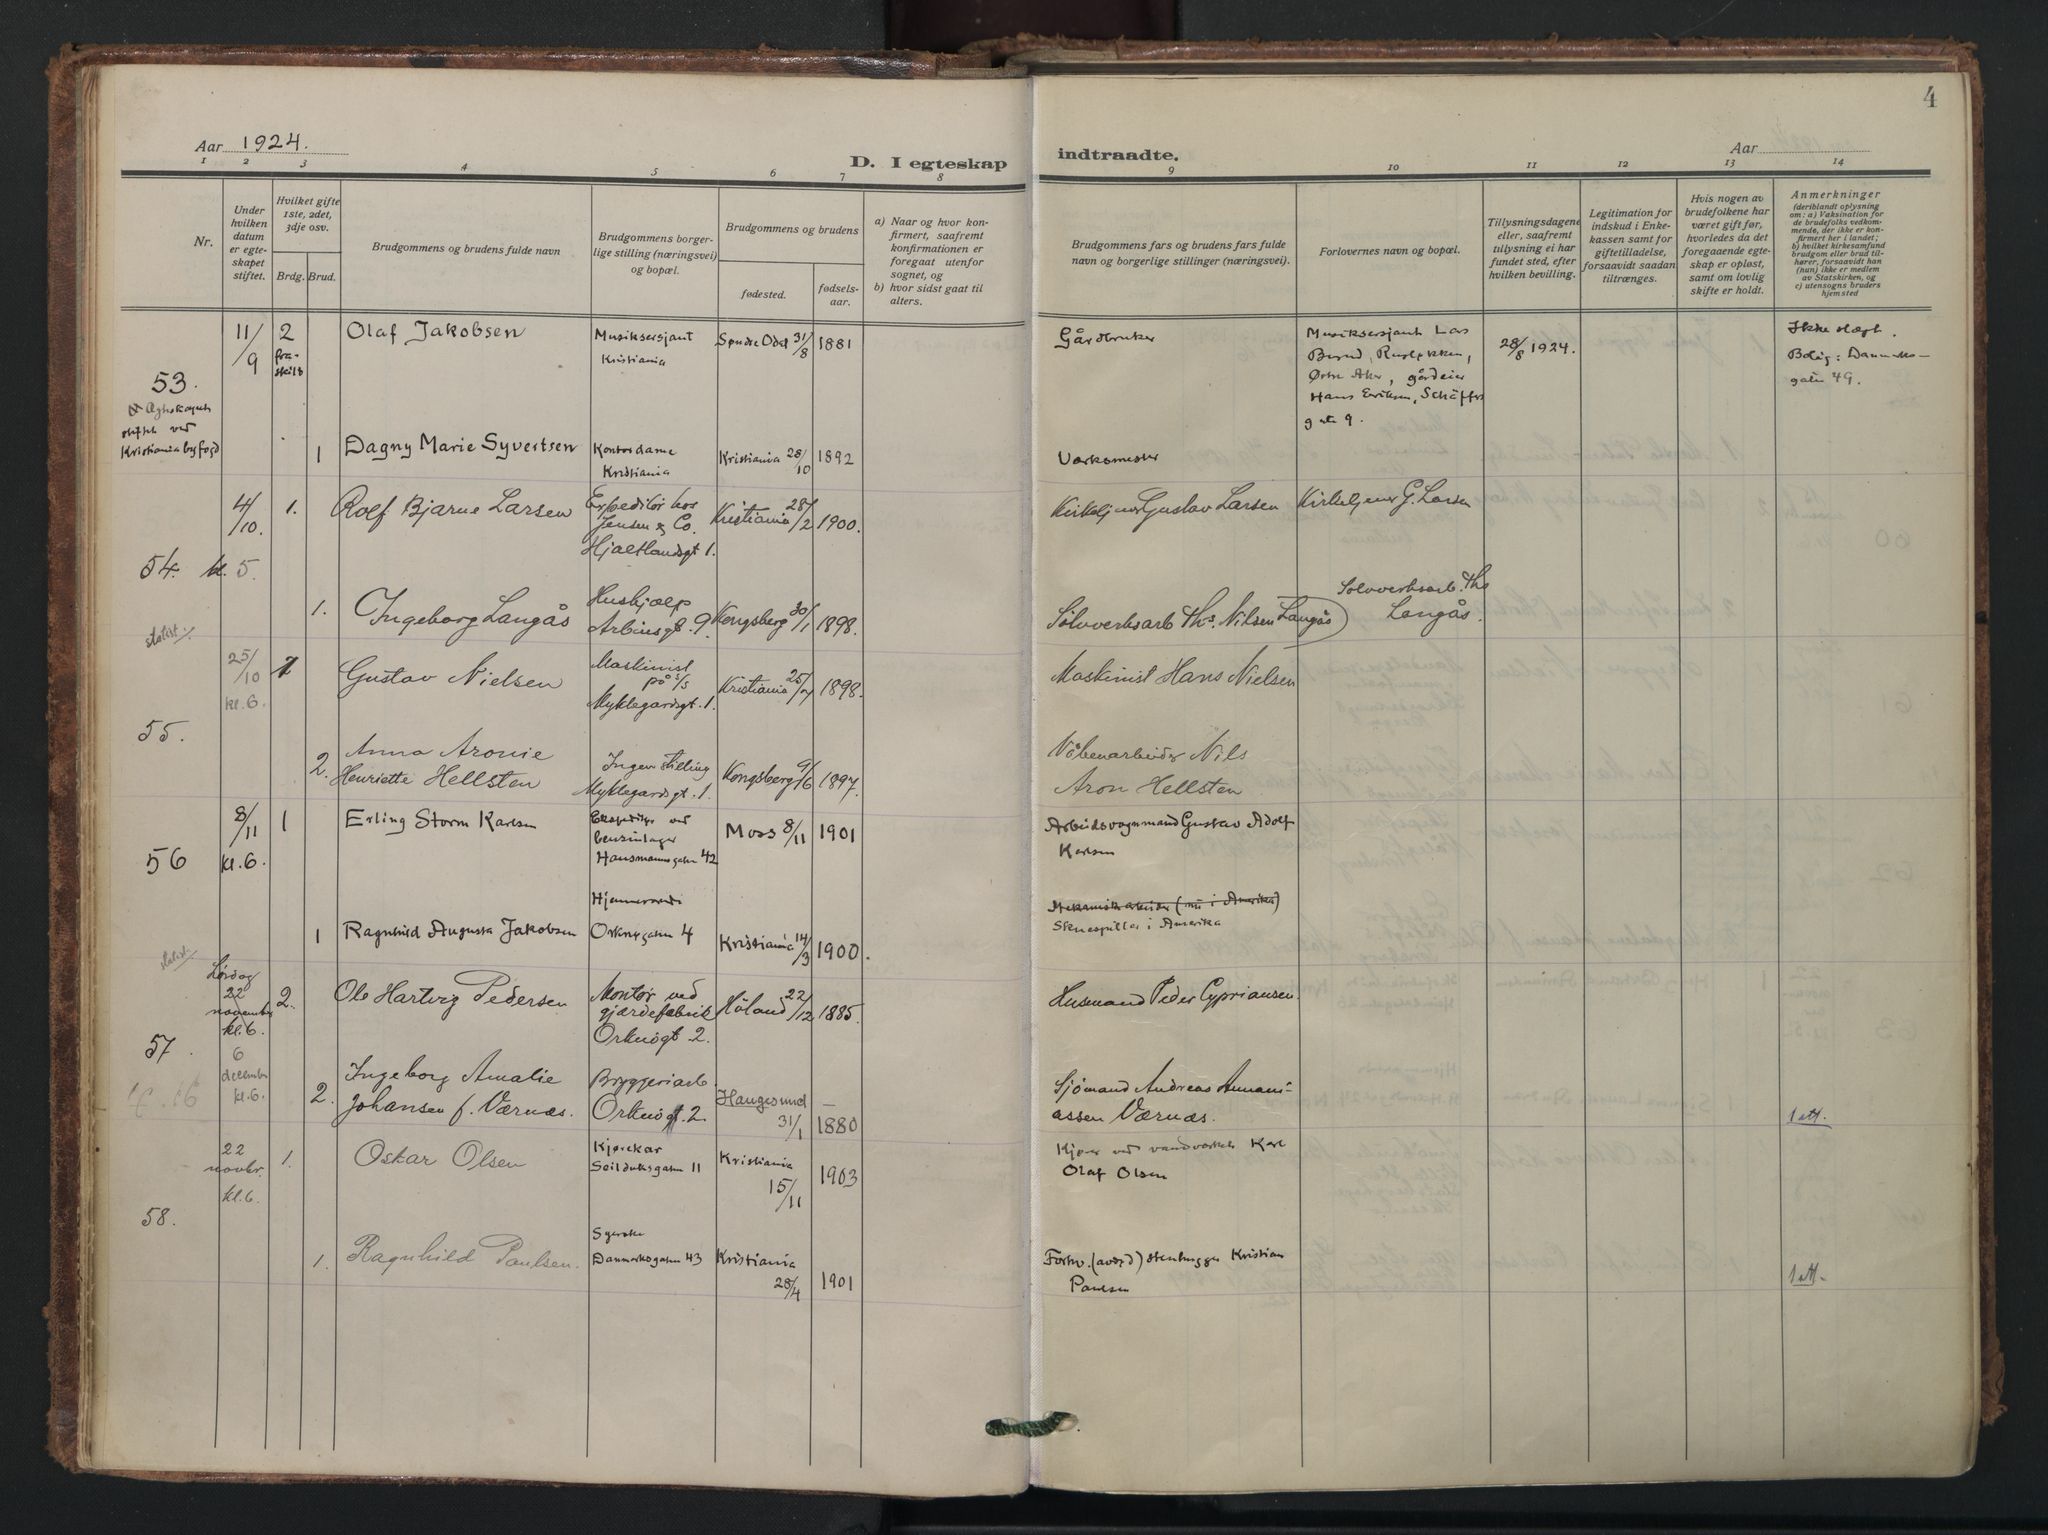 4
Aar 1924.
D. I egteskap indtraadte.
Aar
1 2 3 4 5 6 7 8 9 10 11 12 13 14
Nr.
Under hvilken datum er egteskapet stiftet.
Hvilket gifte 1ste, 2det, 3dje osv.
Brdg. Brud.
Brudgommens og brudens fulde navn
Brudgommens borgerlige stilling (næringsvei) og bopæl.
Brudgommens og brudens
fødested.
fødselsaar.
a) Naar og hvor konfirmert, saafremt konfirmationen er foregaat utenfor sognet, og
b) hvor sidst gaat til alters.
Brudgommens fars og brudens fars fulde navn og borgerlige stillinger (næringsvei).
Forlovernes navn og bopæl.
Tillysningsdagene eller, saafremt tillysning ei har fundet sted, efter hvilken bevilling.
Legitimation for indskud i Enkekassen samt for giftetilladelse, forsaavidt saadan tiltrænges.
Hvis nogen av brudefolkene har været gift før, hvorledes da det foregaaende egteskap er opløst, samt om lovlig skifte er holdt.
Anmerkninger
(deriblandt oplysning om: a) Vaksination for de brudefolks vedkommende, der ikke er konfirmert her i landet; b) hvilket kirkesamfund brudgom eller brud tilhører, forsaavidt han (hun) ikke er medlem av Statskirken, og c) utensogns bruders hjemsted
53.
Kristiania byfogd
11/9
2
fraskilt
Olaf Jakobsen
Musiksersjant
Kristiania
Søndre Odal 31/8
1881
Gårdbruker
Musiksersjant Lars
Østre Aker, gårdeier
Hans Eriksen,
gate 9.
28/8 1924.
Bolig: Danmarks-
gate 49.
1
Dagny Marie Syvertsen
Kontordame
Kristiania
Kristiania 28/10
1892
Verksmester
54. kl. 5.
4/10.
1.
Rolf Bjarne Larsen
Expeditør hos
Jensen & Co.
Hjaltlandsgt 1.
Kristiania 28/2
1900.
Kirketjener Gustav Larsen
Kirketjener G. Larsen
1.
Ingeborg Langås
Hushjælp
Arbinsgt 9.
Kongsberg 30/1
1898.
Sølvverksarb. Ths. Nilsen Langås)
Sølvverksarb. Ths
Langås.
55.
25/10
kl. 6.
1
Gustav Nielsen
Maskinist
på s/s
Myklegardsgt. 1.
Kristiania
1898.
Maskinist Hans Nielsen
2.
Anna Aronie
Henriette Hellsten
Ingen stilling
Myklegardsgt. 1.
Kongsberg 9/6
1897.
Våbenarbeider Nils
Aron Hellsten
56
8/11
kl. 6.
1
Erling Storm Karlsen
Ekspeditør ved
bensinlager
Hausmannsgaten 42
Moss 8/11
1901
Arbeidsvognmand Gustav Adolf
Karlsen
1
Ragnhild Augusta Jakobsen
Hjemmeværende
Orknøgaten 4
Kristiania 14/3
1900.
Mekanisk arbeider (nu i Amerika)
Skuespiller i Amerika
57.
Lørdag
22
november
kl. 6.
2.
Ole Hartvig Pedersen
Montør ved
gjærdefabrik
Orknøgt 2.
Høland 22/12
1885.
Husmand Peder Cypriansen.
6
december
kl. 6.
2.
Ingeborg Amalie
Johansen f. Værnæs.
Bryggeriarb.
Orknøgt. 2
Haugesund
31/1
1880
Sjömand Andreas Amani-
assen Værnæs.
1 att.
58.
22
novbr.
kl. 6.
1.
Oskar Olsen
Kjørekar
Seilduksgaten 11
Kristiania
15/11
1903
Kjører ved vandverket Karl
Olaf Olsen
1.
Ragnhild Paulsen.
Syerske
Danmarksgaten 43
Kristiania
28/4
1901
Forhv. (avdød) stenhugger Kristian
Paulsen
1 att.